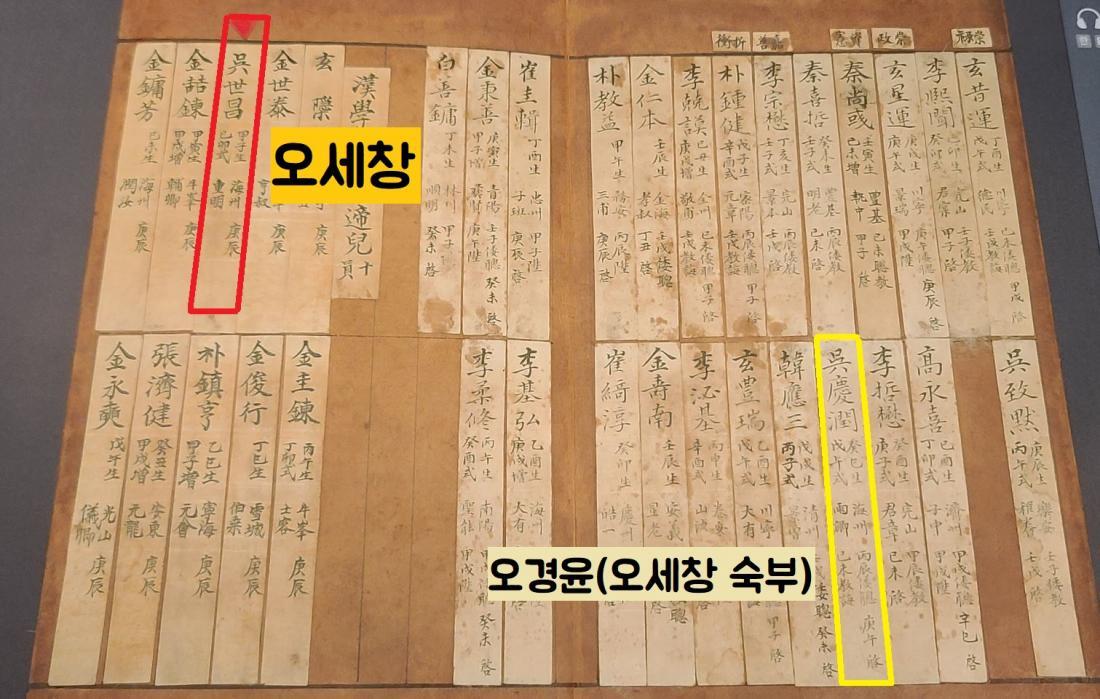 崇祿
崇政
資憲
嘉善
折衝
玄昔運 丁酉生 戊午式 川寧 德民 己未倭聰 壬戌教誨 甲戌 啓
李熙聞
玄星運 庚午式 川寧 景瑞 甲戌陞 庚辰 啓
秦尚彧 壬寅生 己未增 聖基 執中 己未聰教 甲子 啓
秦喜哲 癸未生 壬子式 豊基 明老 丙辰倭教 己未 啓
李宗懋 丁亥生 壬子式 完山 景本 丙辰倭教 壬戌教誨 甲子 啓
朴鍾健 戊子生 辛酉式 密陽 元章 己未倭教 壬戌教誨 甲子 啓
李 己丑生 庚戌增 全州 敬甫 己未倭聰 壬戌教誨 甲子 啓
金仁本 壬辰生 金海 孝叔 壬戌倭聰 丁丑 啓
朴教益 甲午生 務安 三甫 丙辰陞 庚辰 啓
崔圭輯 丁酉生 忠州 子班 甲子陞 庚辰 啓
金秉善 庚寅生 甲子增 青陽 壬子倭聰 癸未 啓
白善鏞 丁未生 林川 順明 甲子 癸未 啓
漢學
適兒
十
員
玄檃 庚辰
金世泰 庚辰
吳世昌 甲子生 己卯式 海州 重明 庚辰
金喆鍊 甲寅生 甲戌增 牛峯 輔卿 庚辰
金鏞芳 己未生 海州 潤汝 庚辰
吳致默 庚辰生 丙午式 樂安 稚春 壬子倭教 壬戌 啓
高永喜 己酉生 丁卯式 濟州 子中 甲戌倭聰 甲戌陞 辛巳 啓
李哲懋 癸酉生 庚子式 完山 君章 甲辰倭教 己未 啓
吳慶潤 癸巳生 戊午式 海州 雨卿 丙辰倭聰 己未教誨 庚午 啓
韓應三 戊戌生 丙子式 清州 倭聰 癸未 啓
玄豊瑞 乙酉生 戊午式 川寧 大有 甲子 啓
李沁基 丙申生 辛酉式
金壽南 壬辰生 安義 星老
崔綺淳 癸卯生 慶州 皓一
李基弘 乙酉生 庚戌增 海州 大有
李柔修 丙午生 癸酉式 南陽 聖能 甲戌陞 癸未 啓
金圭鍊 丙午生 丁卯式 牛峯 士容 庚辰
金俊行 丁巳生 雪城 伯桒 庚辰
朴鎮亨 乙巳生 甲子增 寧海 元會 庚辰
張濟健 癸丑生 甲戌增 安東 元龍 庚辰
金永奭 戊午生 光山 儀卿 庚辰
오세창
오경윤(오세창 숙부)